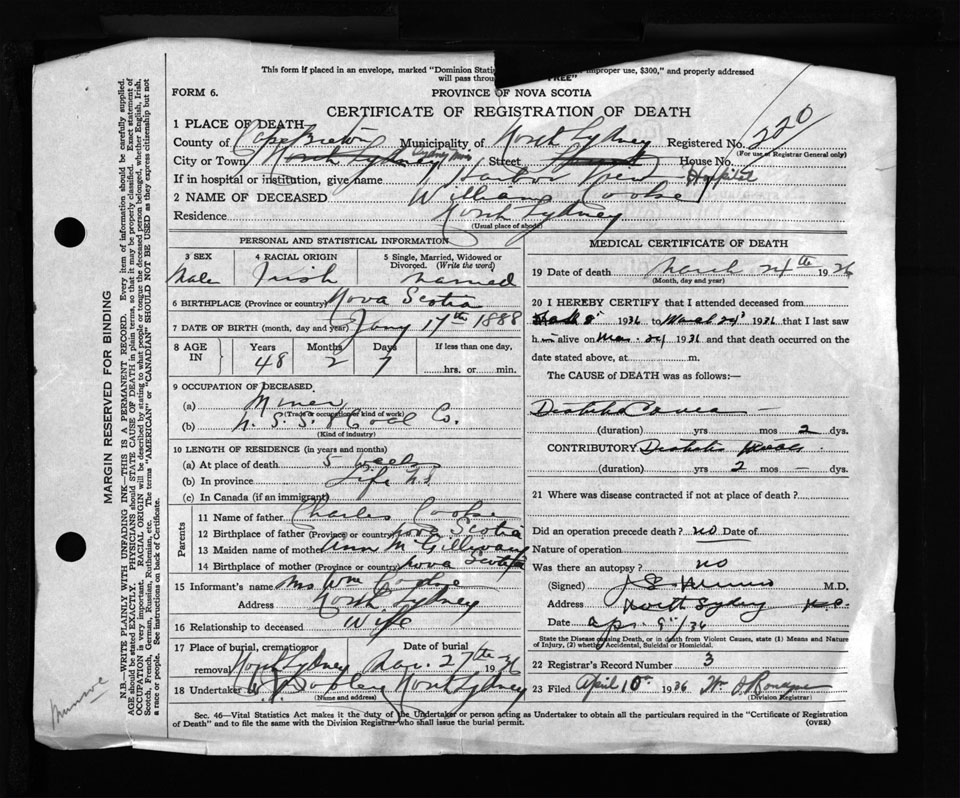 This form if placed in an envelope, marked "Dominion Statis improper use, $300," and properly addressed
will pass throu FREE"
FORM 6. PROVINCE OF NOVA SCOTIA
CERTIFICATE OF REGISTRATION OF DEATH
1 PLACE OF DEATH
County of Cape Breton Municipality of North Sydney Registered No. 220
(For use of Registrar General only)
City or Town North Sydney Sydney Mines Street House No.
If in hospital or institution, give name Harbor View Hospital
2 NAME OF DECEASED William Cooke
Residence North Sydney
(Usual place of abode)
PERSONAL AND STATISTICAL INFORMATION
3 SEX 4 RACIAL ORIGIN 5 Single, Married, Widowed or Divorced. (Write the word)
Male Irish Married
6 BIRTHPLACE (Province or country) Nova Scotia
7 DATE OF BIRTH (month, day and year) Jany 17th 1888
8 AGE IN Years Months Days If less than one day,
48 2 7 hrs. or min.
9 OCCUPATION OF DECEASED
(a) Miner
(Trade or occupation or kind of work)
(b) N. S. S. & Coal Co.
(Kind of industry)
10 LENGTH OF RESIDENCE (in years and months)
(a) At place of death 5 weeks
(b) In province Life N.S.
(c) In Canada (if an immigrant)
Parents
11 Name of father Charles Cooke
12 Birthplace of father (Province or country) Nova Scotia
13 Maiden name of mother Ann McGillivary
14 Birthplace of mother (Province or country) Nova Scotia
15 Informant's name Mrs Wm Cooke
Address North Sydney
16 Relationship to deceased Wife
17 Place of burial, cremation or removal North Sydney Date of burial Mar. 27th 1936
18 Undertaker North Sydney
(Name and address)
MEDICAL CERTIFICATE OF DEATH
19 Date of death March 24th 1936
(Month, day and year)
20 I HEREBY CERTIFY that I attended deceased from
1936 to March 24 1936 that I last saw
him alive on Mar. 24 1936 and that death occurred on the
date stated above, at m.
The CAUSE of DEATH was as follows:—
Diabetic Coma —
(duration) yrs mos 2 dys.
CONTRIBUTORY Diabetic
(duration) yrs 2 mos — dys.
21 Where was disease contracted if not at place of death?
Did an operation precede death? no Date of
Nature of operation
Was there an autopsy? no
(Signed) M.D.
Address North Sydney N.S.
Date Apr. 9/36
State the Disease causing Death, or in death from Violent Causes, state (1) Means and Nature
of Injury, (2) whether Accidental, Suicidal or Homicidal.
22 Registrar's Record Number 3
23 Filed April 10th 1936
(Division Registrar)
Sec. 46—Vital Statistics Act makes it the duty of the Undertaker or person acting as Undertaker to obtain all the particulars required in the "Certificate of Registration
of Death" and to file the same with the Division Registrar who shall issue the burial permit. (OVER)
MARGIN RESERVED FOR BINDING
N.B.—WRITE PLAINLY WITH UNFADING INK—THIS IS A PERMANENT RECORD. Every item of information should be carefully supplied.
AGE should be stated EXACTLY. PHYSICIANS should STATE CAUSE OF DEATH in plain terms, so that it may be properly classified. Exact statement of
OCCUPATION is very important. RACIAL ORIGIN will be described by stating to what people or tongue the deceased person belonged, whether English, Irish,
Scotch, French, German, Russian, Ruthenian, etc. The terms "AMERICAN" or "CANADIAN" SHOULD NOT BE USED as they express citizenship but not
a race or people. See instructions on back of Certificate.